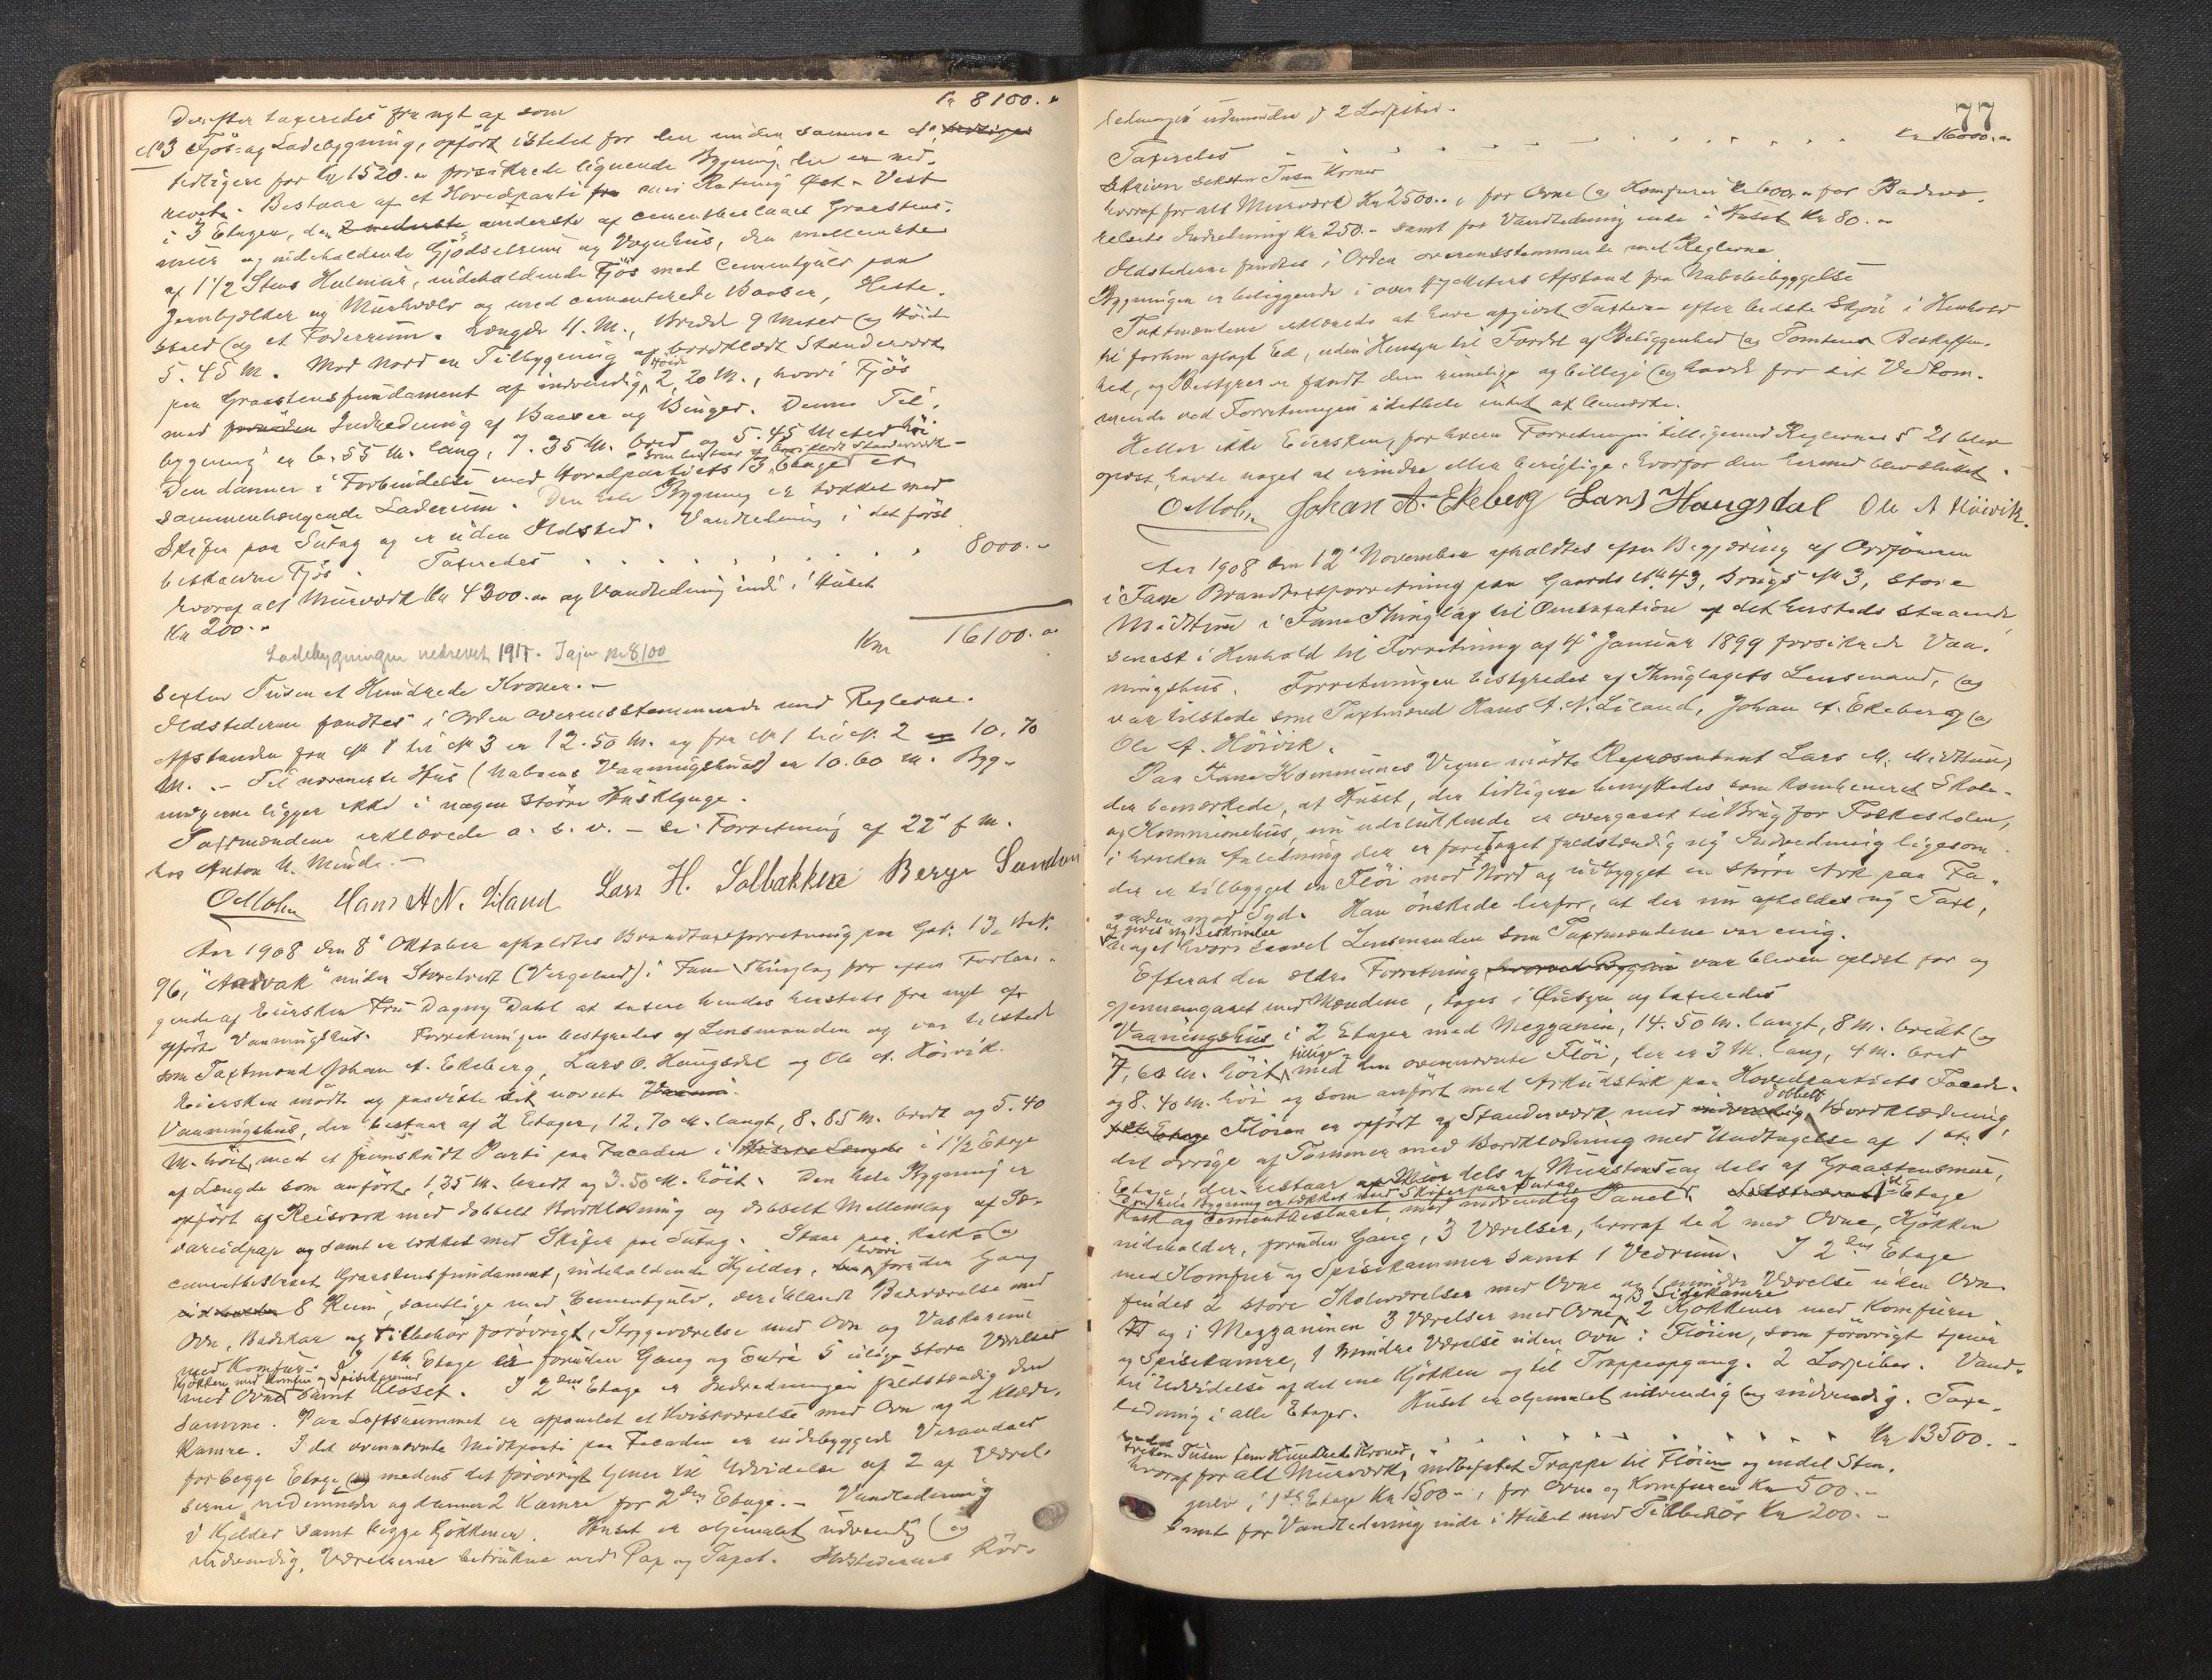 Kr 8100.-
Derefter taxeredes fra nyt af som
No 3 Fjös- og Ladebygning, opfört istedet for den under samme No
tidligere for Kr 1520.- forsikrede lignende Bygning, der er ned-
revet. Bestaar af et Hovedparti med Retning Öst - Vest
i 3 Etager, den underste af cementbeslaaet Graastens-
mur og indeholdende Gjödselrum og Vognhus, den mellemste
af 1 1/2 Stens Hulmur, indeholdende Fjös med Cementgulv paa
Jernbjelker og Murhvælv og med cementerede Baaser, Heste-
stald og et Foderrum. Længde 11. M., Bredde 9 Meter og Höide
5.45 M. Mod Nord en Tilbygning af bordklædt Standerværk
paa Graastensfundament af indvendig Höide 2,20 M., hvori Fjös
med Indredning af Baaser og Binger. Denne Til-
bygning er 6.55 M. lang, 7.35 M. bred og 5.45 Meter höi.
Den danner i Forbindelse med Hovedpartiets 3. Etage som bestaar af bordklædt Standerværk et
sammenhængende Laderum. Den hele Bygning er tækket med
Skifer paa Sutag og er uden Ildsted. Vandledning i det först
beskrevne Fjös. Taxeredes . . . . . . . 8000.-
hvoraf alt Murværk Kr 4300.- og Vandledning inde i Huset
Kr 200.-
Kr 16100.-
Ladebygningen nedrevet 1915. Igjen kr 8100
Sexten Tusen et Hundrede Kroner.-
Ildstederne fandtes i Orden overensstemmende med Reglerne.
Afstanden fra No 1 til No 3 er 12.50 M. og fra No 1 til No. 2 10.70
M. - Til nærmeste Hus (Naboens Vaaningshus) er 10.60 M. Byg-
ningerne ligger ikke i nogen större Husklynge.
Taxtmændene erklærede o. s. v. - se Forretning af 22de f. M.
hos Anton N. Minde.-
OMohn Hans A N. Liland Lars H. Solbakken Berge
Aar 1908 den 8de Oktober afholdtes Brandtaxtforretning paa Gab. 13, Bnr.
96, "Aarvak" under Storetveit (Vergeland) i Fane Thinglag for efter Forlan-
gende af Eiersken Fru Dagny Dahl at taxere hendes hersteds fra nyt af
opförte Vaaningshus. Forretningen bestyredes af Lensmanden og var tilstede
som Taxtmænd Johan A. Ekeberg, Lars O. Haugsdal og Ole A. Höivik.
Eiersken mödte og paaviste sit nævnte
Vaaningshus, der bestaar af 2 Etager, 12.70 M. langt, 8.85 M. bredt og 5.40
M. höit, med et fremskudt Parti paa Facaden i 1 1/2 Etage
af Længde som anfört, 1,35 M. bredt og 3.50 M. höit. Den hele Bygning er
opfört af Reisverk med dobbelt Bordklædning og dobbelt Mellemlag af
og samt er tækket med Skifer paa Sutag. Staar paa Kalk- og
cementbeslaaet Graastensfundament, indeholdende Kjelder, hvori foruden Gang
8 Rum, samtlige med Cementgulv, deriblandt Badeværelse med
Ovn, Badekar og Tilbehör forövrigt, Strygeværelse med Ovn og Vaskerum
med Komfur. I 1ste Etage er foruden Gang og Entré 5 ulige store Værelser
med Ovne Kjökken med Komfur og Spisekammer samt Kloset. I 2den Etage er Indredningen fuldstændig den
samme. Paa Loftsrummet er afpanelet et Kvistværelse med Ovn og 2 Klæde-
kamre. I det ovennævnte Midtparti paa Facaden er indebyggede Verandaer
for begge Etager medens det forövrigt tjener til Udvidelse af 2 af Værel-
serne nedenunder og danner 2 Kamre for 2den Etage. - Vandledning
i Kjelder samt begge Kjökkener. Huset er oljemalet udvendig og
indvendig, Værelserne betrukne med Pap og Tapet. Ildstedernes Rör-
ledninger udmunder i 2 Lodpiber.
77
Taxeredes . . . . . . . . . . . Kr 16000.-
Skriver Seksten Tusen Kroner
hvoraf for alt Murværk Kr 2500.-, for Ovne og Komfurer Kr 600.- for Badevæ-
relsets Indredning Kr 250.- samt for Vandledning inde i Huset Kr 80.-
Ildstederne fandtes i Orden overensstemmende med Reglerne
Bygningen er beliggende i over 47 Meters Afstand fra Nabobebyggelse
Taxtmændene erklærede at have afgivet Taxterne efter bedste Skjön i Henhold
til forhen aflagt Ed, uden Hensyn til Fordel af Beliggenhed og Tomtens Beskaffen-
hed, og Bestyreren fandt dem rimelige og billige og havde for sit Vedkom-
mende ved Forretningen idethele intet at bemærke.
Heller ikke Eiersken, for hvem Forretningen tilligemed Reglernes § 21 blev
oplæst, havde noget at erindre eller berigtige, hvorfor den hermed blev sluttet.
OMohn Johan A. Ekeberg Lars Haugsdal Ole A Höivik.
Aar 1908 den 12te November afholdtes efter Begjæring af Ordföreren
i Fane Brandtaxtforretning paa Gaards No. 43, Brugs No 3, Store
Midttun i Fane Thinglag til Omtaxation af det hersteds staaende
senest i Henhold til Forretning af 4de Januar 1899 forsikrede Vaa-
ningshus. Forretningen bestyredes af Thinglagets Lensmand, og
var tilstede som Taxtmænd Hans A. N. Liland, Johan A. Ekeberg og
Ole A. Höivik.
Paa Fane Kommunes Vegne mödte Repræsentant Lars M. Midttun,
der bemærkede, at Huset, der tidligere benyttedes som kombineret Skole-
og Kommunehus, nu udelukkende er overgaaet til Brug for Folkeskolen,
i hvilken Anledning der er foretaget fuldstændig ny Indredning ligesom
der er tilbygget en Flöi mod Nord og udbygget en större Ark paa Fa-
caden mod Syd. Han önskede derfor, at der nu afholdes ny Taxt,
og gives ny Beskrivelse
noget hvori saavel Lensmanden som Taxtmændene var enig.
Efterat den ældre Forretning var bleven oplæst for og
gjennemgaaet med Mændene, toges i Öiesyn og taxeredes
Vaaningshus i 2 Etager med Mezzanin, 14.50 M. langt, 8 M. bredt og
7,60 M. höit, tillige med den ovennævnte Flöi, der er 3 M. lang, 4 M. bred
og 8.40 M. höi og som anfört med Arkudstik paa Hovedpartiets Facade.
Flöien er opfört af Standerværk med dobbelt Bordklædning,
det övrige af Tömmer med Bordklædning med Undtagelse af 1ste
Etage der bestaar dels af Murstens og dels af Graastensmur,
Den hele Bygning er tækket med Skifer paa Sutag.
Kalk og Cementbeslaaet, med indvendig Panel. 1ste Etage
indeholder, foruden Gang, 3 Værelser, hvoraf de 2 med Ovne, Kjökken
med Komfur og Spisekammer samt 1 Vedrum. I 2den Etage
findes 2 store Skoleværelser med Ovne og 1 mindre Værelse uden Ovn
og i Mezzaninen 3 Værelser med Ovne og 3 Sidekamre, 2 Kjökkener med Komfurer
og Spisekamre, 1 mindre Værelse uden Ovn i Flöien, som forövrigt tjener
til Udvidelse af det ene Kjökken og til Trappeopgang. 2 Lodpiber. Vand-
ledning i alle Etager. Huset er oljemalet udvendig og indvendig. Taxe-
redes . . . . . . . . . . Kr 13500.-
tretten Tusen fem Hundrede Kroner,
hvoraf for alt Murværk, indbefattet Trappe til Flöien og endel Sten-
gulv i 1ste Etage Kr 1500.-, for Ovne og Komfurer Kr 500.-
samt for Vandledning inde i Huset med Tilbehör Kr 200.-